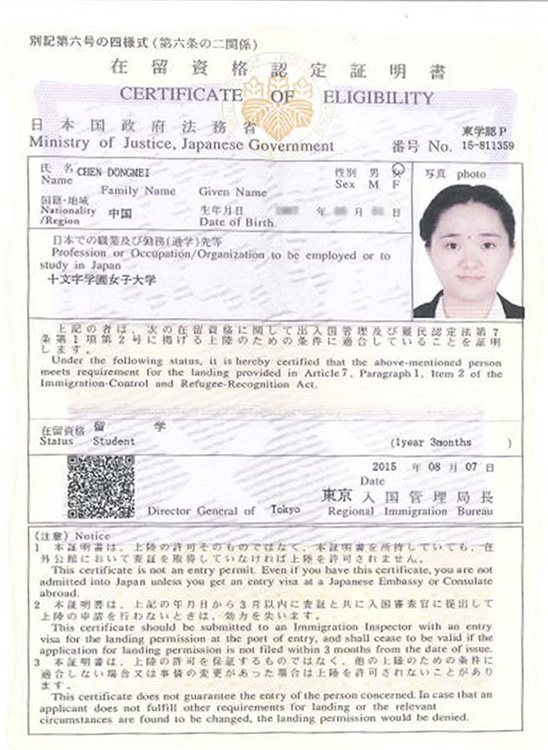 別記第六号の四様式(第六条の二関係)
在留資格認定証明書
CERTIFICATE OF ELIGIBILITY
日本国政府法務省
Ministry of Justice, Japanese Government
東学認P
番号 No. 15-811359
氏名 CHEN DONGMEI
Name
Family Name Given Name
性別 男 女
Sex M F
写真 photo
国籍・地域
Nationality 中国
/Region
生年月日 年 月 日
Date of Birth
日本での職業及び勤務(通学)先等
Profession or Occupation/Organization to be employed or to
study in Japan
十文字学園女子大学
上記の者は、次の在留資格に関して出入国管理及び難民認定法第7
条第1項第2号に掲げる上陸のための条件に適合していることを証明
します。
Under the following status, it is hereby certified that the above-mentioned person
meets requirement for the landing provided in Article 7, Paragraph 1, Item 2 of the
Immigration-Control and Refugee-Recognition Act.
在留資格 留 学
Status Student
(1year 3months )
2015 年 08 月 07 日
Date
東京 入国管理局長
Director General of Tokyo Regional Immigration Bureau
(注意) Notice
1 本証明書は、上陸の許可そのものではなく、本証明書を所持していても、在
外公館において査証を取得していなければ上陸を許可されません。
This certificate is not an entry permit. Even if you have this certificate, you are not
admitted into Japan unless you get an entry visa at a Japanese Embassy or Consulate
abroad.
2 本証明書は、上記の年月日から3月以内に査証と共に入国審査官に提出して
上陸の申請を行わないときは、効力を失います。
This certificate should be submitted to an Immigration Inspector with an entry
visa for the landing permission at the port of entry, and shall cease to be valid if the
application for landing permission is not filed within 3 months from the date of issue.
3 本証明書は、上陸の許可を保証するものではなく、他の上陸のための条件に
適合しない場合又は事情の変更があった場合は上陸を許可されないことがあり
ます。
This certificate does not guarantee the entry of the person concerned. In case that an
applicant does not fulfill other requirements for landing or the relevant
circumstances are found to be changed, the landing permission would be denied.